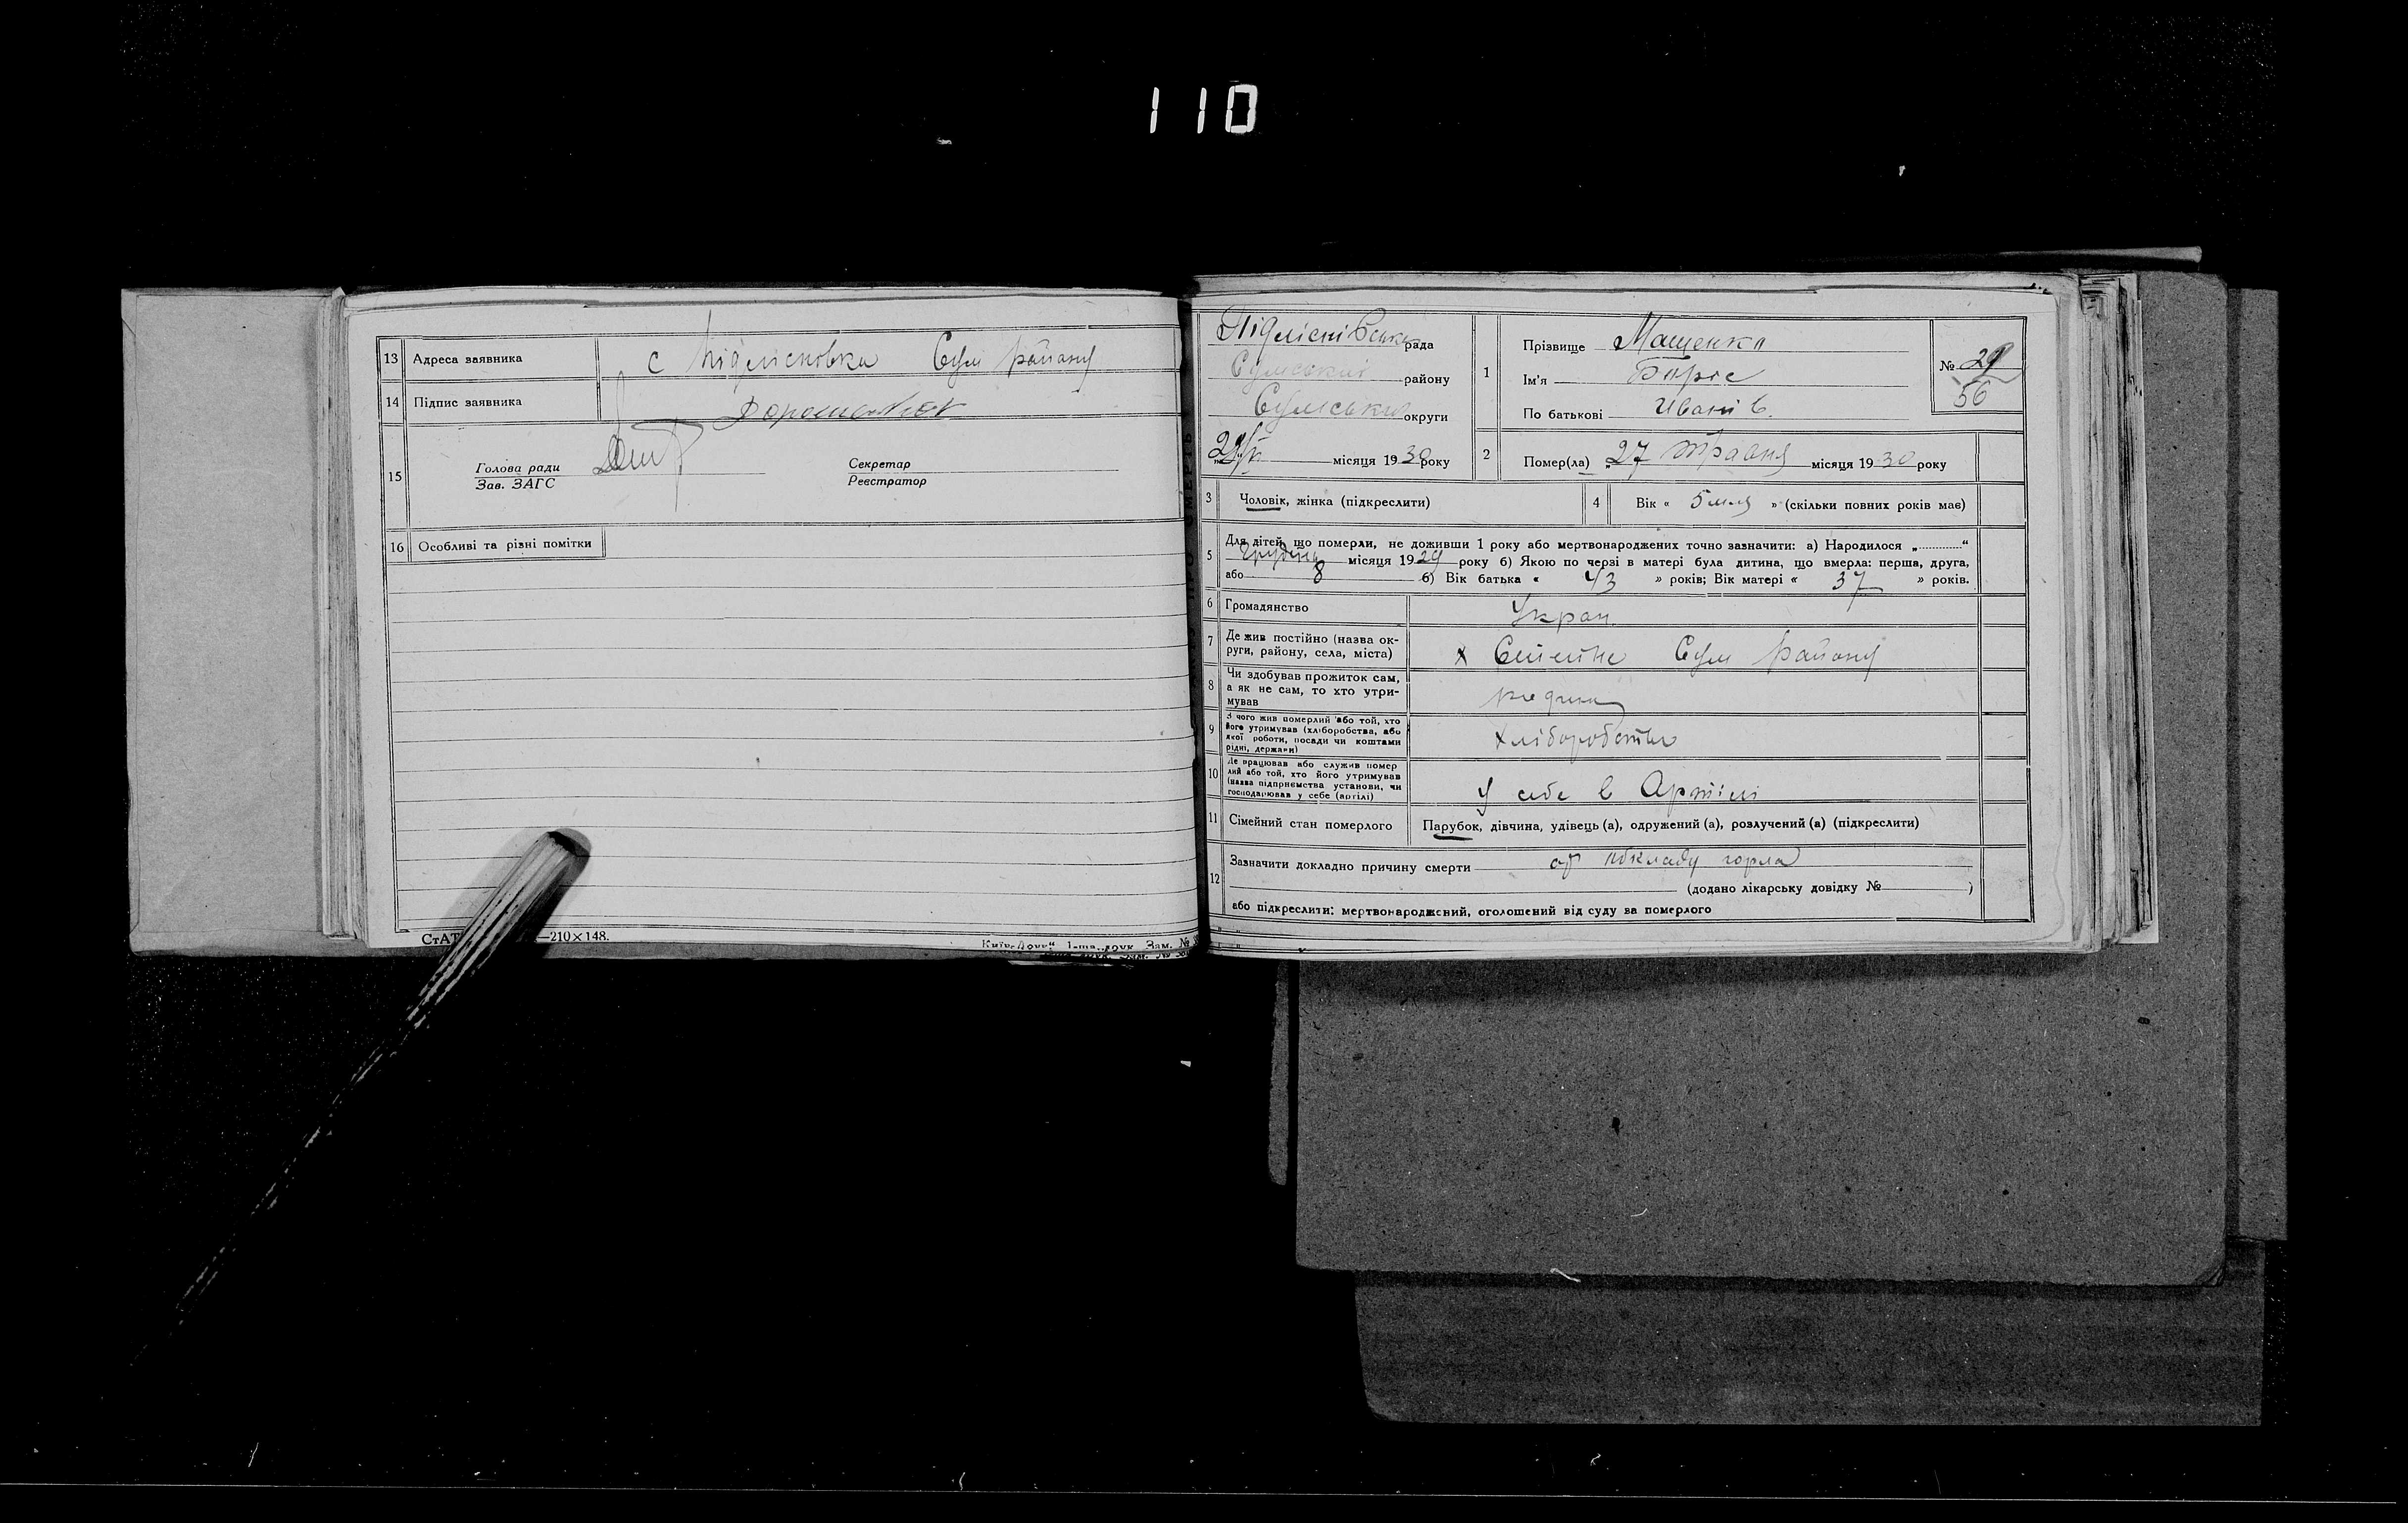 110
13 Адреса заявника с Підлісновка Сум району
14 Підпис заявника
15 Голова ради Секретар
Зав. ЗАГС Реєстратор
16 Особливі та різні помітки
—210×148.
Підліснівська рада
Сумський району
Сумський округи
місяця 1930 року
1 Прізвище Мащенко
Ім'я Борис
По батькові Иванів.
№ 29
56
2 Помер(ла) „27 травня місяця 1930 року
3 Чоловік, жінка (підкреслити)
4 Вік « 5 м-ця » (скільки повних років має)
5 Для дітей, що померли, не доживши 1 року або мертвонароджених точно зазначити: а) Народилося „ “
грудень місяця 1929 року б) Якою по черзі в матері була дитина, що вмерла: перша, друга,
або 8 б) Вік батька « 43 » років; Вік матері « 37 » років.
6 Громадянство Україн.
7 Де жив постійно (назва округи, району, села, міста) х Сум району
8 Чи здобував прожиток сам,
а як не сам, то хто утри-
мував родина
9 З чого жив померлий або той, хто
його утримував (хліборобства, або
якої роботи, посади чи коштами
рідні, держави) хліборобство
10 Де працював або служив помер
лий або той, хто його утримував
(назва підприємства установи, чи
господарював у себе (артілі) У себе в Артілі
11 Сімейний стан померлого Парубок, дівчина, удівець (а), одружений (а), розлучений (а) (підкреслити)
12 Зазначити докладно причину смерти од обкладу горла
(додано лікарську довідку № )
або підкреслити: мертвонароджений, оголошений від суду за померлого